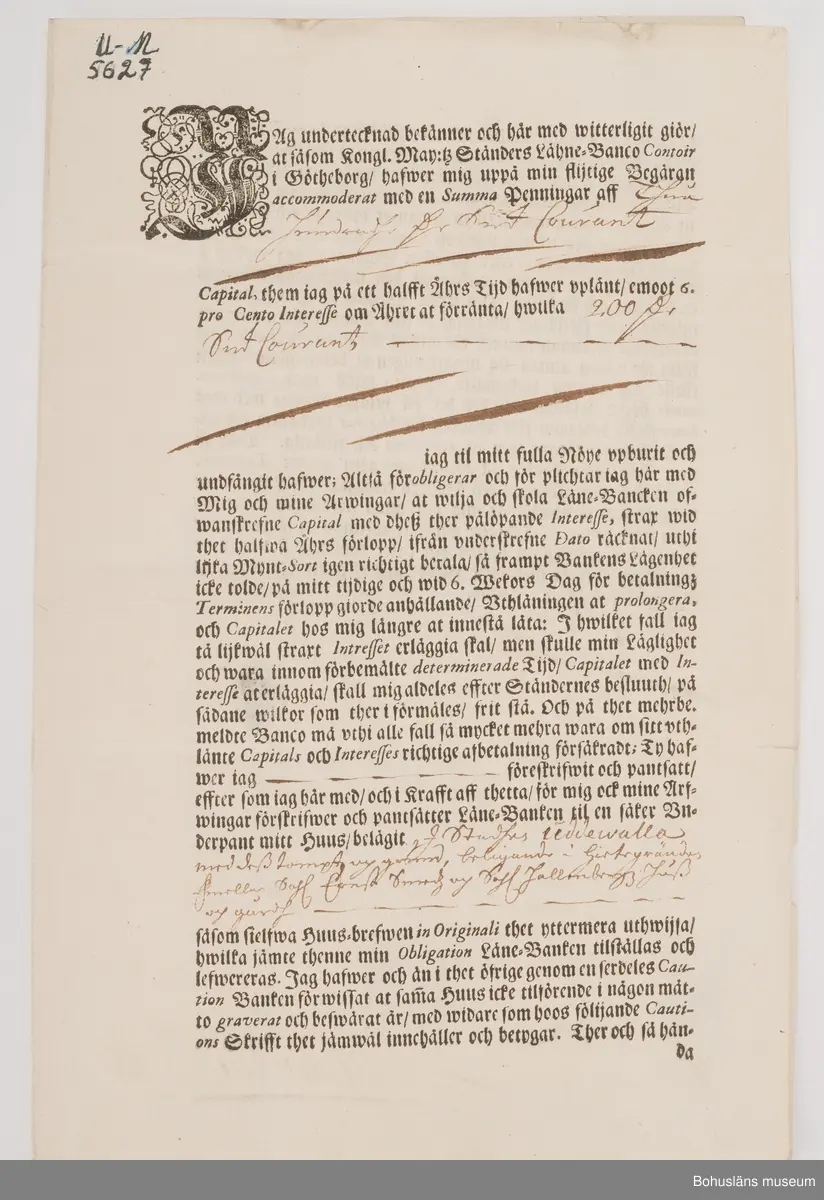 U-M
5627
JAg undertecknad bekänner och här med witterligit giör/
at såsom Kongl. May:tz Ständers Lähne-Banco Contoir
i Götheborg/ hafwer mig uppå min flijtige Begäran
accommoderat med en Summa Penningar aff Thua
Hundrade Dr Smt Courant
Capital, them iag på ett halfft Åhrs Tijd hafwer vplänt/ emoot 6.
pro Cento Interesse om Åhret at förränta/ hwilka 200 Dr
Smt Courant
iag til mitt fulla Nöye vpburit och
undfångit hafwer; Altså förobligerar och för plichtar iag här med
Mig och mine Arwingar/ at wilja och skola Läne-Bancken of-
wanskrefne Capital med dhetz ther pålöpande Interesse, strax wid
thet halfwa Åhrs förlopp/ ifrån vnderskrefne Dato räcknat/ uthi
lijka Mynt-Sort igen richtigt betala/ så frampt Bankens Lägenhet
icke tolde/ på mitt tijdige och wid 6. Wekors Dag för betalningz
Terminens förlopp giorde anhållande/ Vthlåningen at prolongera,
och Capitalet hos mig längre at innestå låta: I hwilket fall iag
tå lijkwäl straxt Intresset erläggia skal/ men skulle min Läglighet
och wara innom förbemälte determinerade Tijd/ Capitalet med In-
teresse at erläggia/ skall mig aldeles effter Ständernes besluuth/ på
sådane wilkor som ther i förmäles/ frit stå. Och på thet mehrbe.
meldte Banco må vthi alle fall så mycket mehra wara om sitt vth-
länte Capitals och Interesses richtige afbetalning försäkradt; Ty haf-
wer iag föreskrifwit och pantsatt/
effter som iag här med/ och i Krafft aff thetta/ för mig ock mine Arf-
wingar förskrifwer och pantsätter Läne-Banken til en säker Vn-
derpant mitt Huus/ belägit i Stadhen Uddewalla
med deß tompt och grund, belägande i Giötegränden
emellan Sahl Ernst Smedz och Sahl Hallenbergz Huß
och gårdh
såsom sielfwa Huus-brefwen in Originali thet yttermera uthwijsa/
hwilka jämte thenne min Obligation Läne-Banken tilställas och
lefwereras. Jag hafwer och än i thet öfrige genom en serdeles Cau-
tion Banken förwissat at sam̃a Huus icke tilförende i någon måt-
to graverat och beswärat är/ med widare som hoos fölijande Cauti-
ons Skrifft thet jämwäl innehåller och betygar. Ther och så hän-
da
Bohusläns museum